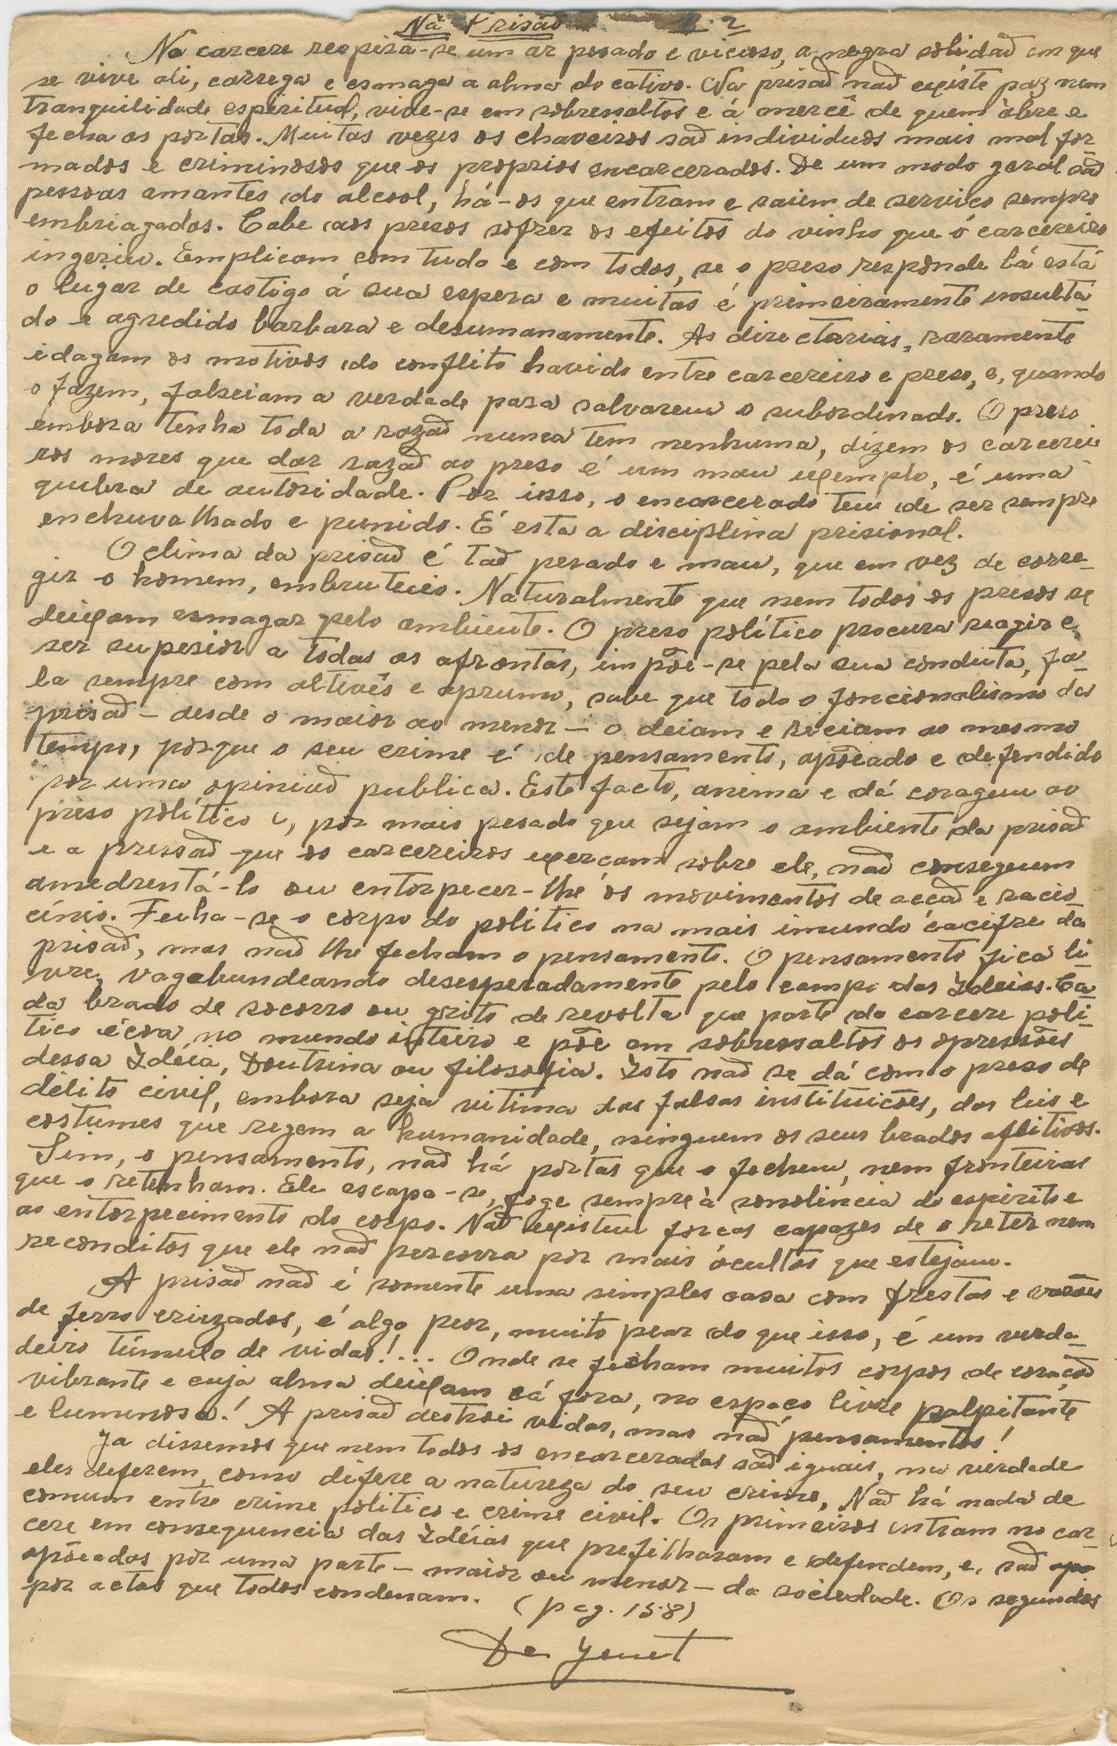 Na Prisão 2
No carcere respira-se um ar pesado e vicioso, a negra solidaõ em que
se vive ali, carrega e esmaga a alma do cativo. Na prisaõ naõ existe paz nem
tranquilidade espiritual, vive-se em sobressaltos e á mercê de quem abre e
fecha as portas. Muitas vezes os chaveiros saõ individuos mais mal for-
mados e criminosos que os proprios encarcerados. De um modo geral saõ
pessoas amantes do alcool, há-os que entram e saiem de serviço sempre
embriagados. Cabe aos presos sofrer os efeitos do vinho que o carcereiro
ingeriu. Emplicam com tudo e com todos, se o preso responde lá está
o lugar de castigo á sua espera e muitas é primeiramente insulta-
do e agredido barbara e desumanamente. As directorias, raramente
idagam os motivos do conflito havido entre carcereiro e preso, e, quando
o fazem, falseiam a verdade para salvarem o subordinado. O preso
embora tenha toda a razaõ nunca tem nenhuma, dizem os carcerei
ros mores que dar razaõ ao preso é um mau exemplo, é uma
quebra de autoridade. Por isso, o encarcerado tem de ser sempre
enchuvalhado e punido. É esta a disciplina prisional.
O clima da prisaõ é taõ pesado e mau, que em vez de corre-
gir o homem, embrutece-o. Naturalmente que nem todos os presos se
deixam esmagar pelo ambiente. O preso político procura reagir e
ser superior a todas as afrontas, impõe-se pela sua conduta, fa-
la sempre com altivês e aprumo, sabe que todo o foncionalismo da
prisaõ - desde o maior ao menor - o deiam e reciam ao mesmo
tempo, porque o seu crime é de pensamento, apoiado e defendido
por uma opiniaõ publica. Este facto, anima e dá coragem ao
preso político e, por mais pesado que sejam o ambiente da prisaõ
e a pressaõ que os carcereiros exerçam sobre ele, naõ conseguem
amedrentá-lo ou entorpecer-lhe os movimentos de acçaõ e racio
cínio. Fecha-se o corpo do político na mais imundo cacifre da
prisaõ, mas naõ lhe fecham o pensamento. O pensamento fica li-
vre, vagabundeando desesperadamente pelo campo das Ideias. Ca-
da brado de socorro ou grito de revolta que parte do carcere polí-
tico écoa no mundo inteiro e põe em sobressaltos os opressões
dessa Idéia, Doutrina ou filosofia. Isto naõ se dá com o preso de
delito civil, embora seja vitima das falsas instituições, das leis e
costumes que regem a humanidade, ninguem os seus brados aflitivos.
Sim, o pensamento, naõ há portas que o fechem, nem fronteiras
que o retenham. Ele escapa-se, foge sempre à sonolência do espirito e
ao entorpecimento do corpo. Naõ existem forças capazes de o reter nem
reconditos que ele naõ percorra por mais ócultos que estejam.
A prisaõ naõ é somente uma simples casa com frestas e varões
de ferro cruzados, é algo peor, muito peor do que isso, é um verda-
deiro túmulo de vidas!... Onde se fecham muitos corpos de coraçaõ
vibrante e cuja alma deixam cá fora, no espaço livre palpitante
e luminosa! A prisaõ destroi vidas, mas naõ pensamentos!
Ja dissemos que nem todos os encarcerados saõ iguais, na verdade
eles diferem, como difere a natureza do seu crime. Naõ há nada de
comum entre crime político e crime civil. Os primeiros entram no car-
cere em consequencia das Idéias que prefilharam e defendem, e, saõ
apóiados por uma parte - maior ou menor - da sociedade. Os segundos
por actos que todos condenam. (pag. 158)
De Jenet